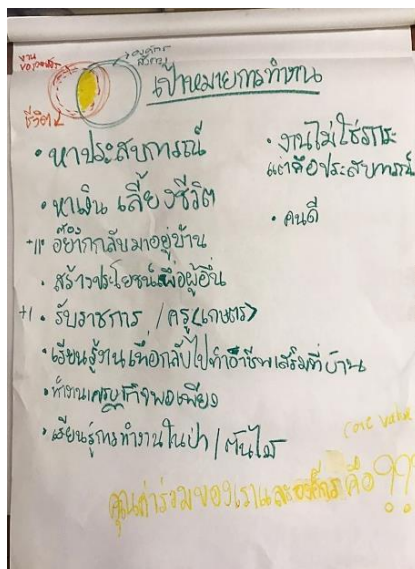 งาน
ของเรา
องค์กร
ชีวิต
เป้าหมายการทำงาน
• หาประสบการณ์
• หาเงิน เลี้ยงชีวิต
+11 อยากกลับมาอยู่บ้าน
• สร้างประโยชน์เพื่อผู้อื่น
+1 • รับราชการ / ครู (เกษตร)
• เรียนรู้งานเพื่อกลับไปทำอาชีพเสริมที่บ้าน
• ทำงานเศรษฐกิจพอเพียง
• เรียนรู้การทำงานในป่า / ต้นไม้
• งานไม่ใช่ภาระ
แต่คือประสบการณ์
• คนดี
core value
คุณค่าร่วมของเราและองค์กรคือ ???